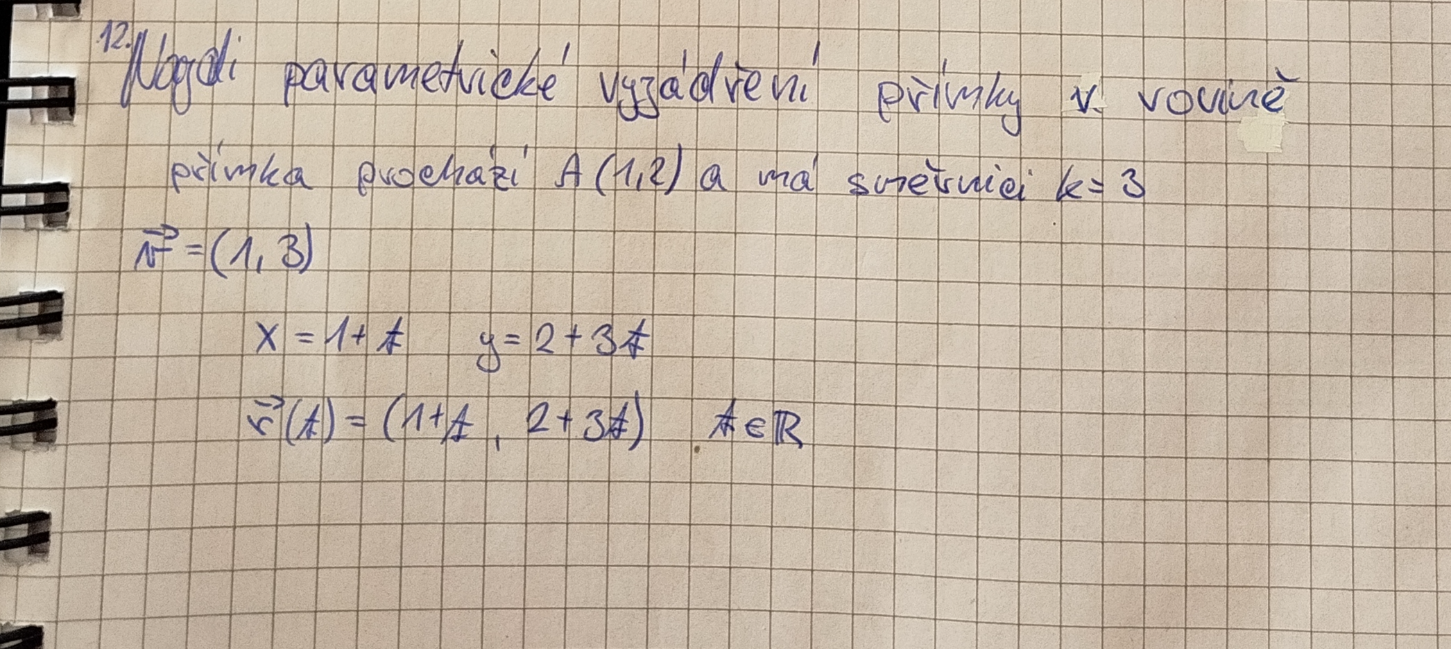 12. Najdi parametrické vyjádření přímky v rovině
přímka prochází A(1,2) a má směrnici k=3
v⃗=(1,3)
x=1+t y=2+3t
r⃗(t)=(1+t, 2+3t) t∈ℝ